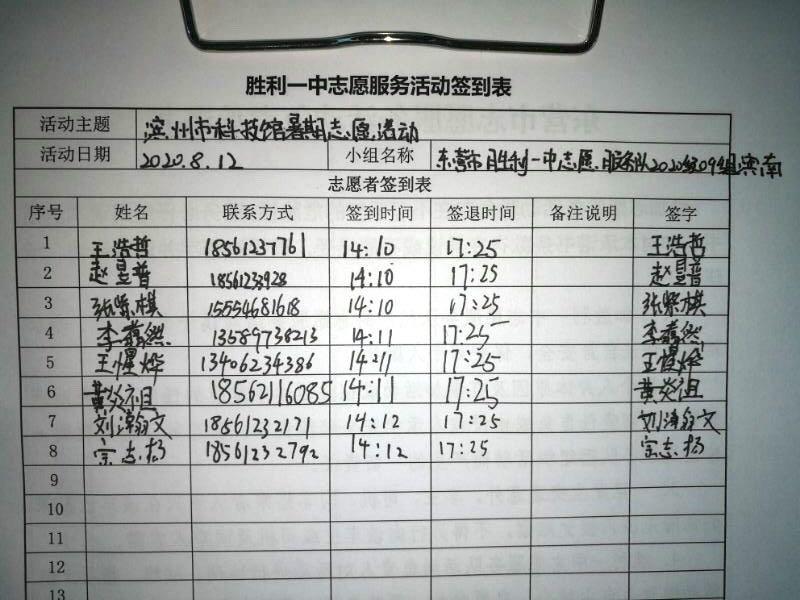 胜利一中志愿服务活动签到表
活动主题 滨州市科技馆暑期志愿活动
活动日期 2020.8.12 小组名称 东营市胜利一中志愿服务队2020级09组滨南
志愿者签到表
序号 姓名 联系方式 签到时间 签退时间 备注说明 签字
1 王浩哲 18561237761 14:10 17:25 王浩哲
2 赵昱普 18561238928 14:10 17:25 赵昱普
3 张紫棋 15554681618 14:10 17:25 张紫棋
4 李嘉然 13589738213 14:11 17:25 李嘉然
5 王惺烨 13406234386 14:11 17:25 王惺烨
6 黄炎祖 18562116085 14:11 17:25 黄炎祖
7 刘瀚文 18561232171 14:12 17:25 刘瀚文
8 宗志杨 18561232792 14:12 17:25 宗志杨
9
10
11
12
13